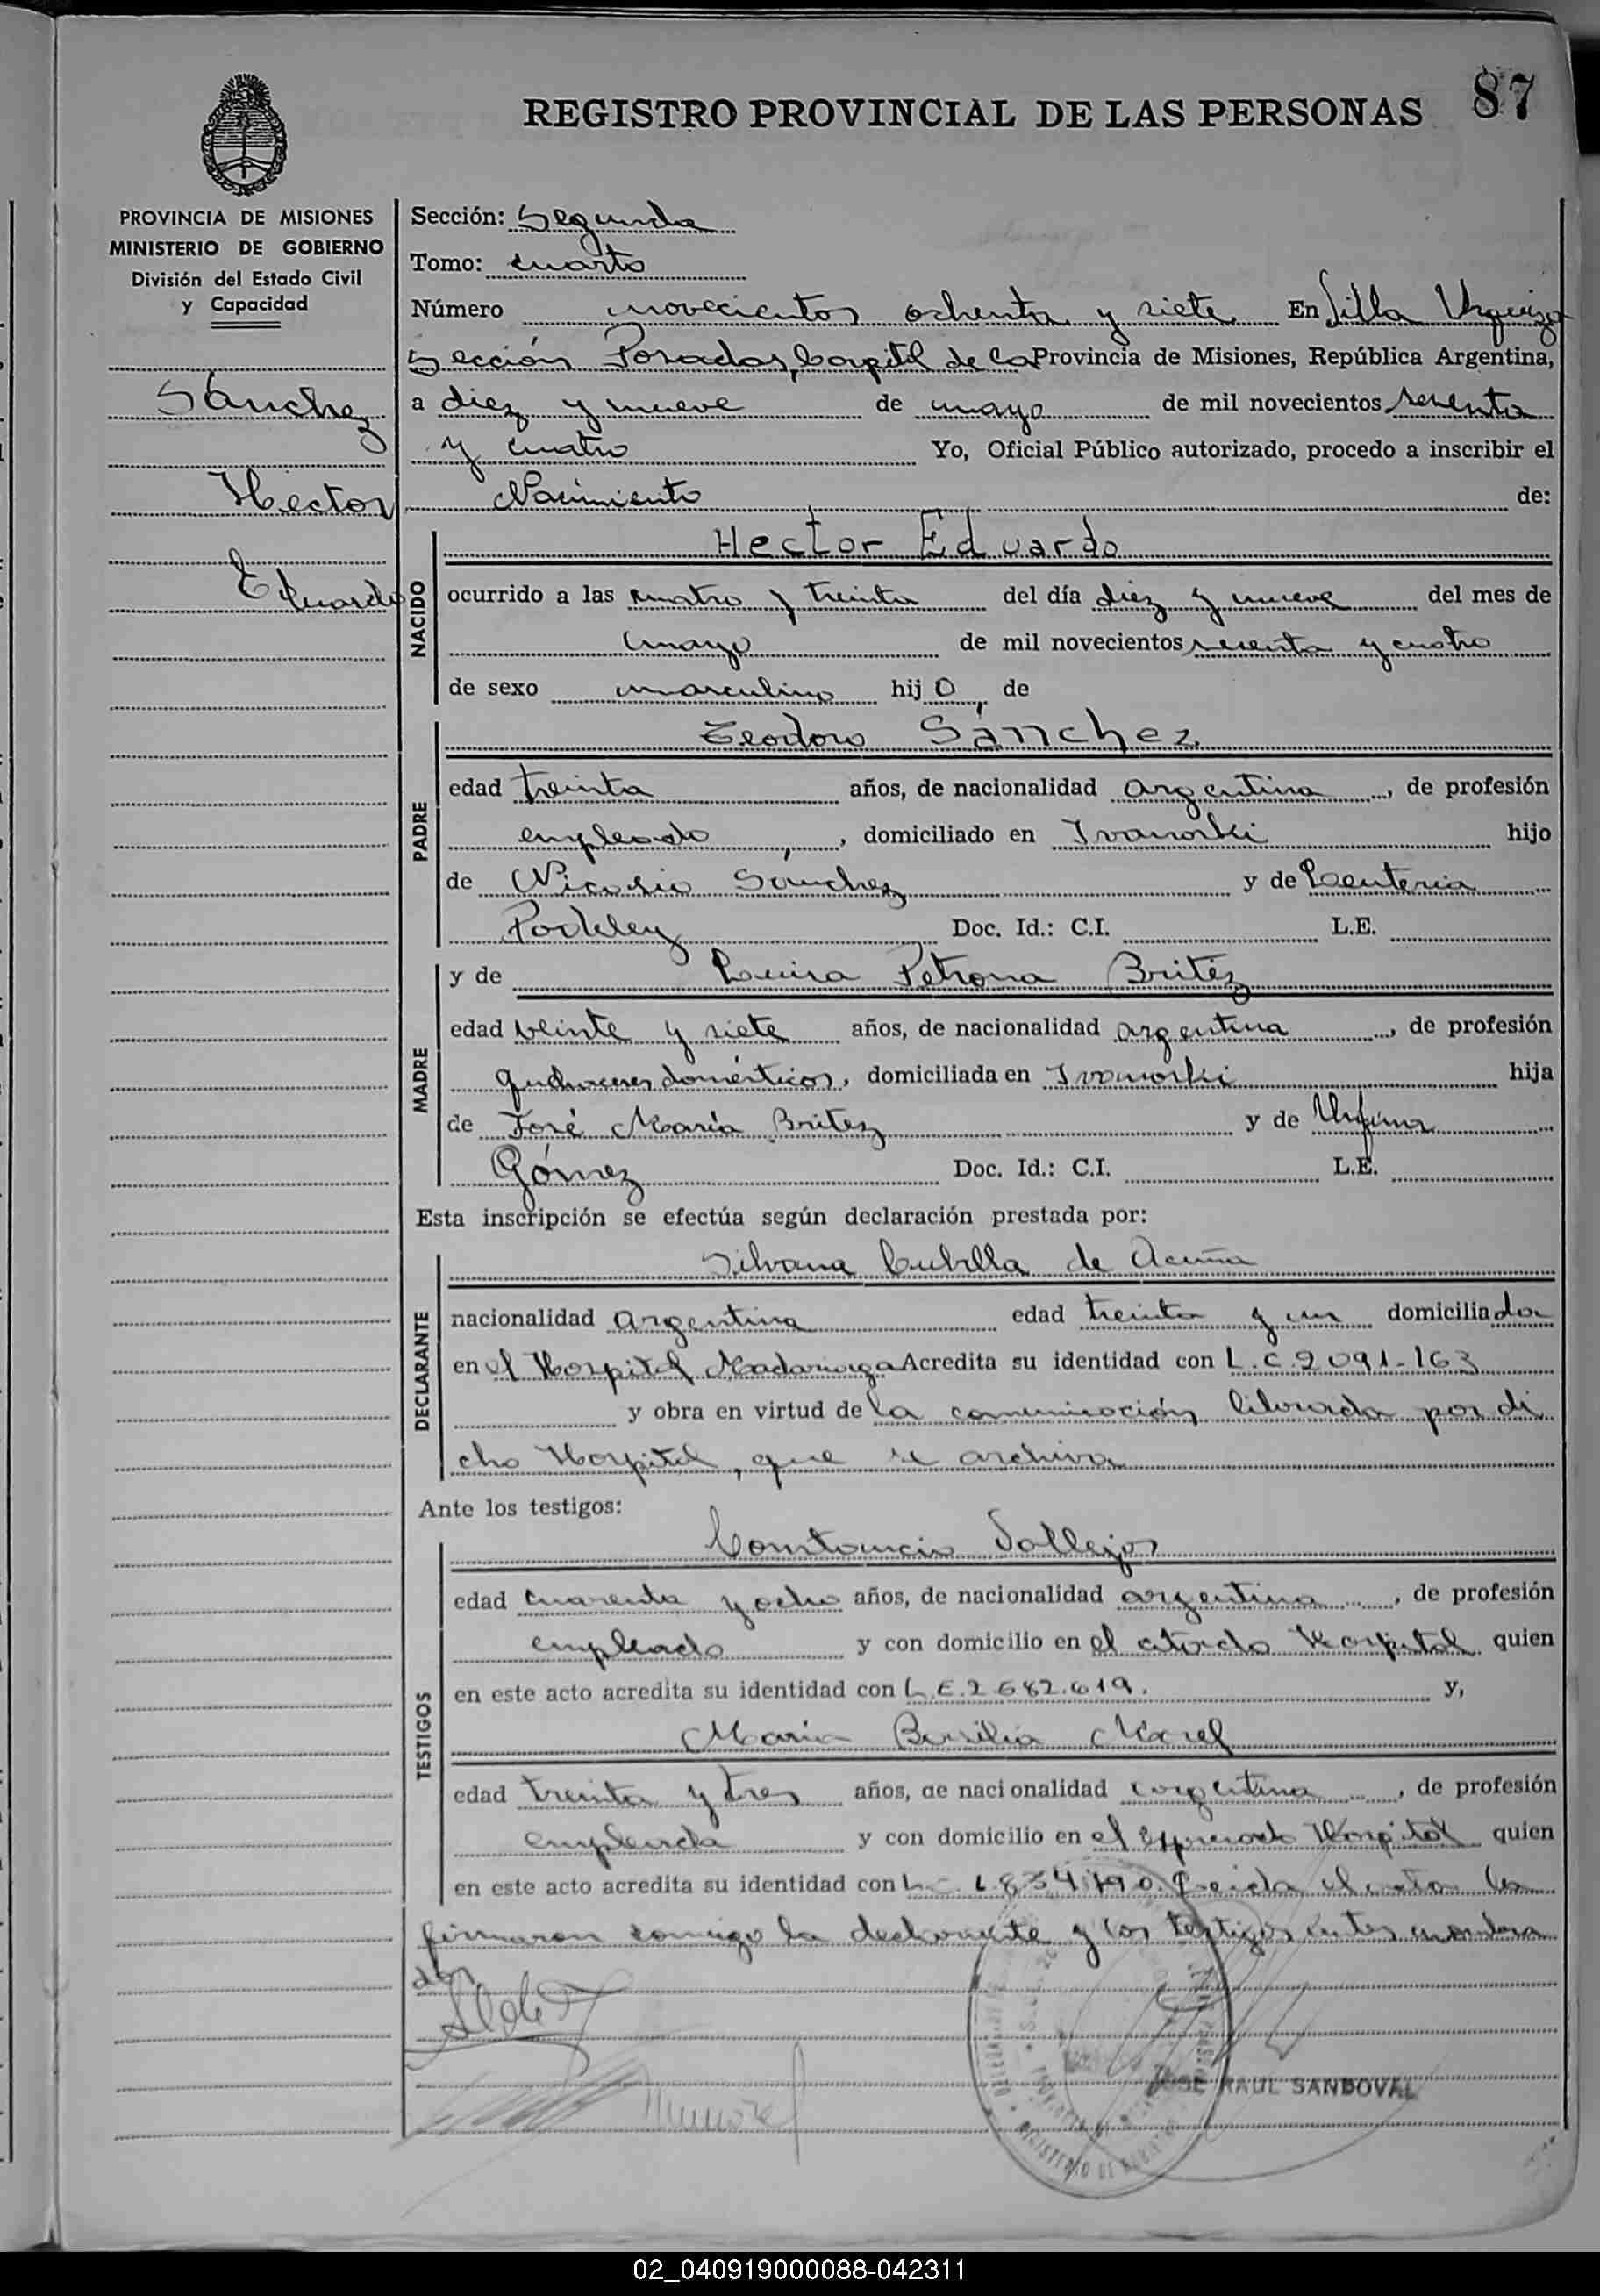 87
REGISTRO PROVINCIAL DE LAS PERSONAS
PROVINCIA DE MISIONES
MINISTERIO DE GOBIERNO
División del Estado Civil
y Capacidad
Sánchez
Hector
Eduardo
Sección: Segunda
Tomo: cuarto
Número novecientos ochenta y siete En Villa Urquiza
Sección Posadas, Capital de la Provincia de Misiones, República Argentina,
a diez y nueve de mayo de mil novecientos sesenta
y cuatro Yo, Oficial Público autorizado, procedo a inscribir el
Nacimiento de:
NACIDO
Hector Eduardo
ocurrido a las cuatro y treinta del día diez y nueve del mes de
mayo de mil novecientos sesenta y cuatro
de sexo masculino hijo de
PADRE
Teodoro Sánchez
edad treinta años, de nacionalidad argentina, de profesión
empleado, domiciliado en Ivanoski hijo
de Nicasio Sánchez y de
Doc. Id.: C.I. L.E.
MADRE
y de Luisa Petrona Britez
edad veinte y siete años, de nacionalidad argentina, de profesión
quehaceres domésticos, domiciliada en Ivanoski hija
de José María Britez y de
Gómez Doc. Id.: C.I. L.E.
Esta inscripción se efectúa según declaración prestada por:
DECLARANTE
Silvana Cubilla de Acuña
nacionalidad argentina edad treinta y un domiciliada
en el Hospital Madariaga Acredita su identidad con L.C. 2091.163
y obra en virtud de la comunicación librada por di
cho Hospital, que se archiva
Ante los testigos:
TESTIGOS
Constancio Vallejos
edad cuarenta y ocho años, de nacionalidad argentina, de profesión
empleado y con domicilio en el citado Hospital quien
en este acto acredita su identidad con L.E. 2682.619. y,
Maria Basilia Marel
edad treinta y tres años, de nacionalidad argentina, de profesión
empleada y con domicilio en el expresado Hospital quien
en este acto acredita su identidad con L.C. Leida el acta la
firmaron conmigo la declarante y los testigos antes nombra
dos
JOSE RAUL SANDOVAL
02_040919000088-042311